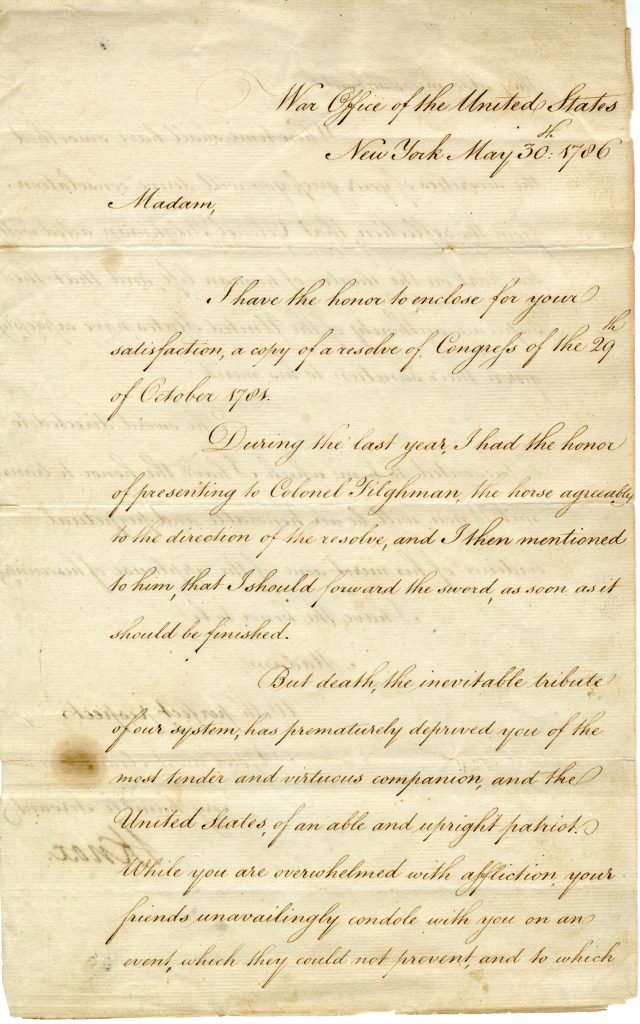 War Office of the United States
New York May 30th: 1786
Madam,
I have the honor to enclose for your
satisfaction, a copy of a resolve of Congress of the 29th
of October 1781.
During the last year, I had the honor
of presenting to Colonel Tilghman, the horse agreeably
to the direction of the resolve, and I then mentioned
to him, that I should forward the sword, as soon as it
should be finished.
But death, the inevitable tribute
of our system, has prematurely deprived you of the
most tender and virtuous companion, and the
United States, of an able and upright patriot.
While you are overwhelmed with affliction, your
friends unavailingly condole with you on an
event, which they could not prevent, and to which